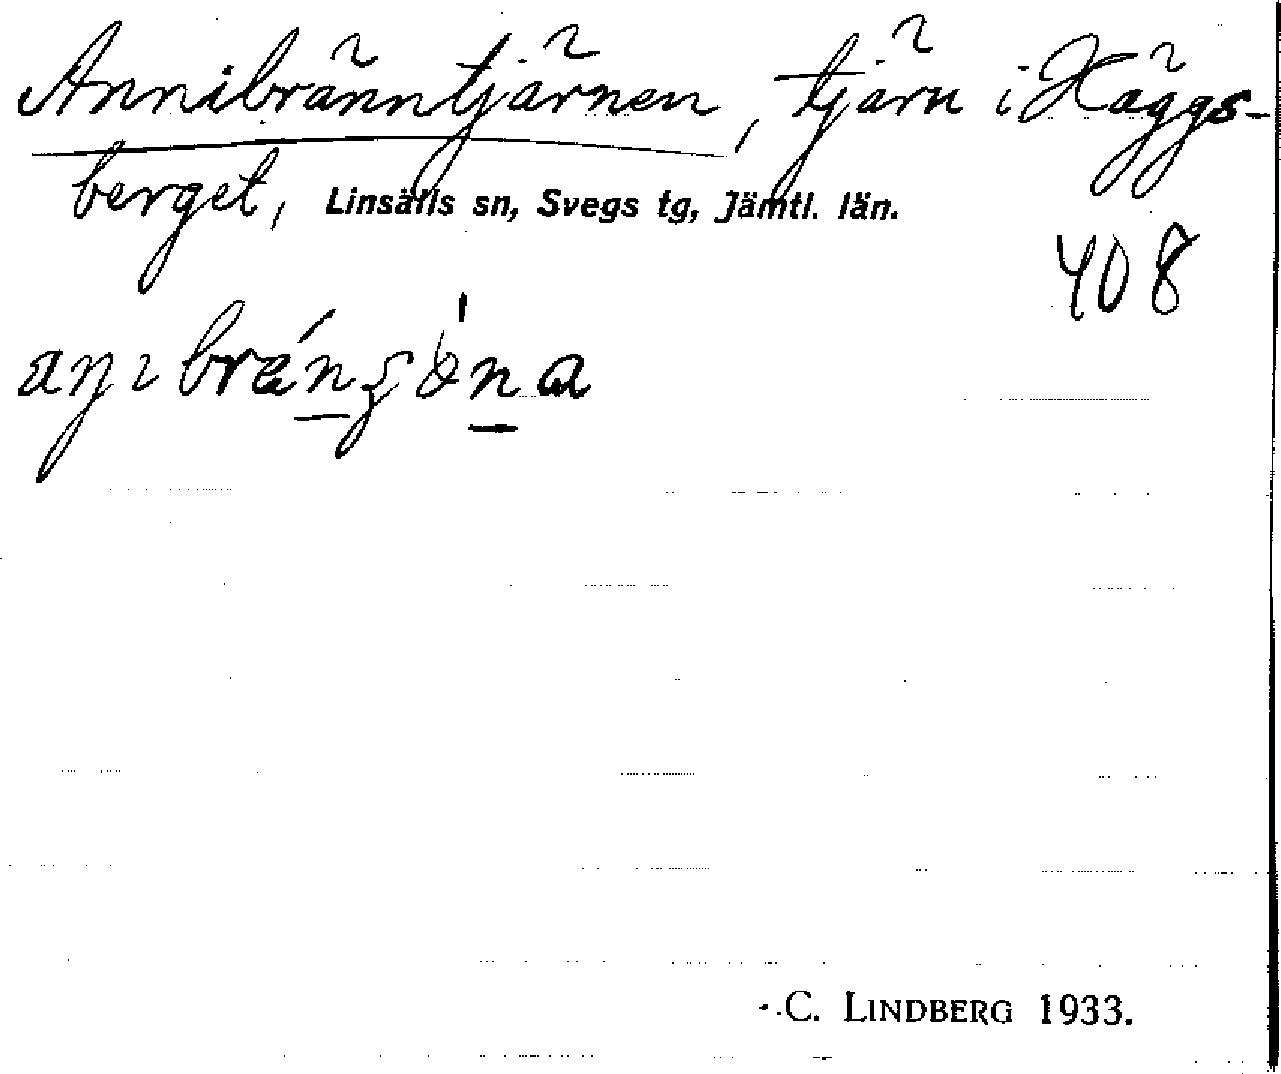 Annibränntjärnen, tjärn i Häggs-
berget, Linsälls sn, Svegs tg, Jämtl. län.
408
C. LINDBERG 1933.